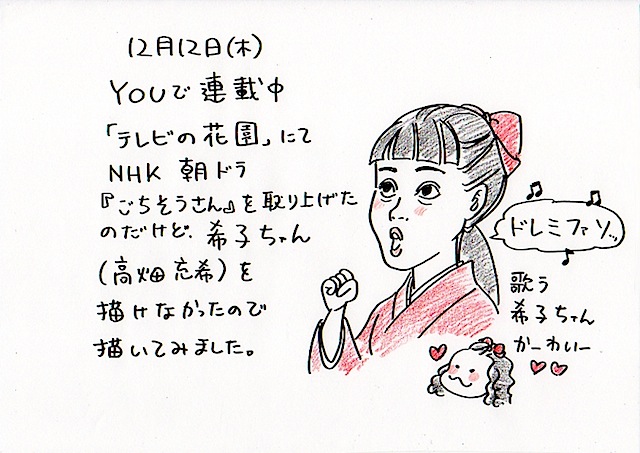 12月12日(木)
YOUで連載中
「テレビの花園」にて
NHK 朝ドラ
『ごちそうさん』を取り上げた
のだけど、希子ちゃん
(高畑充希)を
描けなかったので
描いてみました。
ドレミファソ…
歌う
希子ちゃん
かーわいー